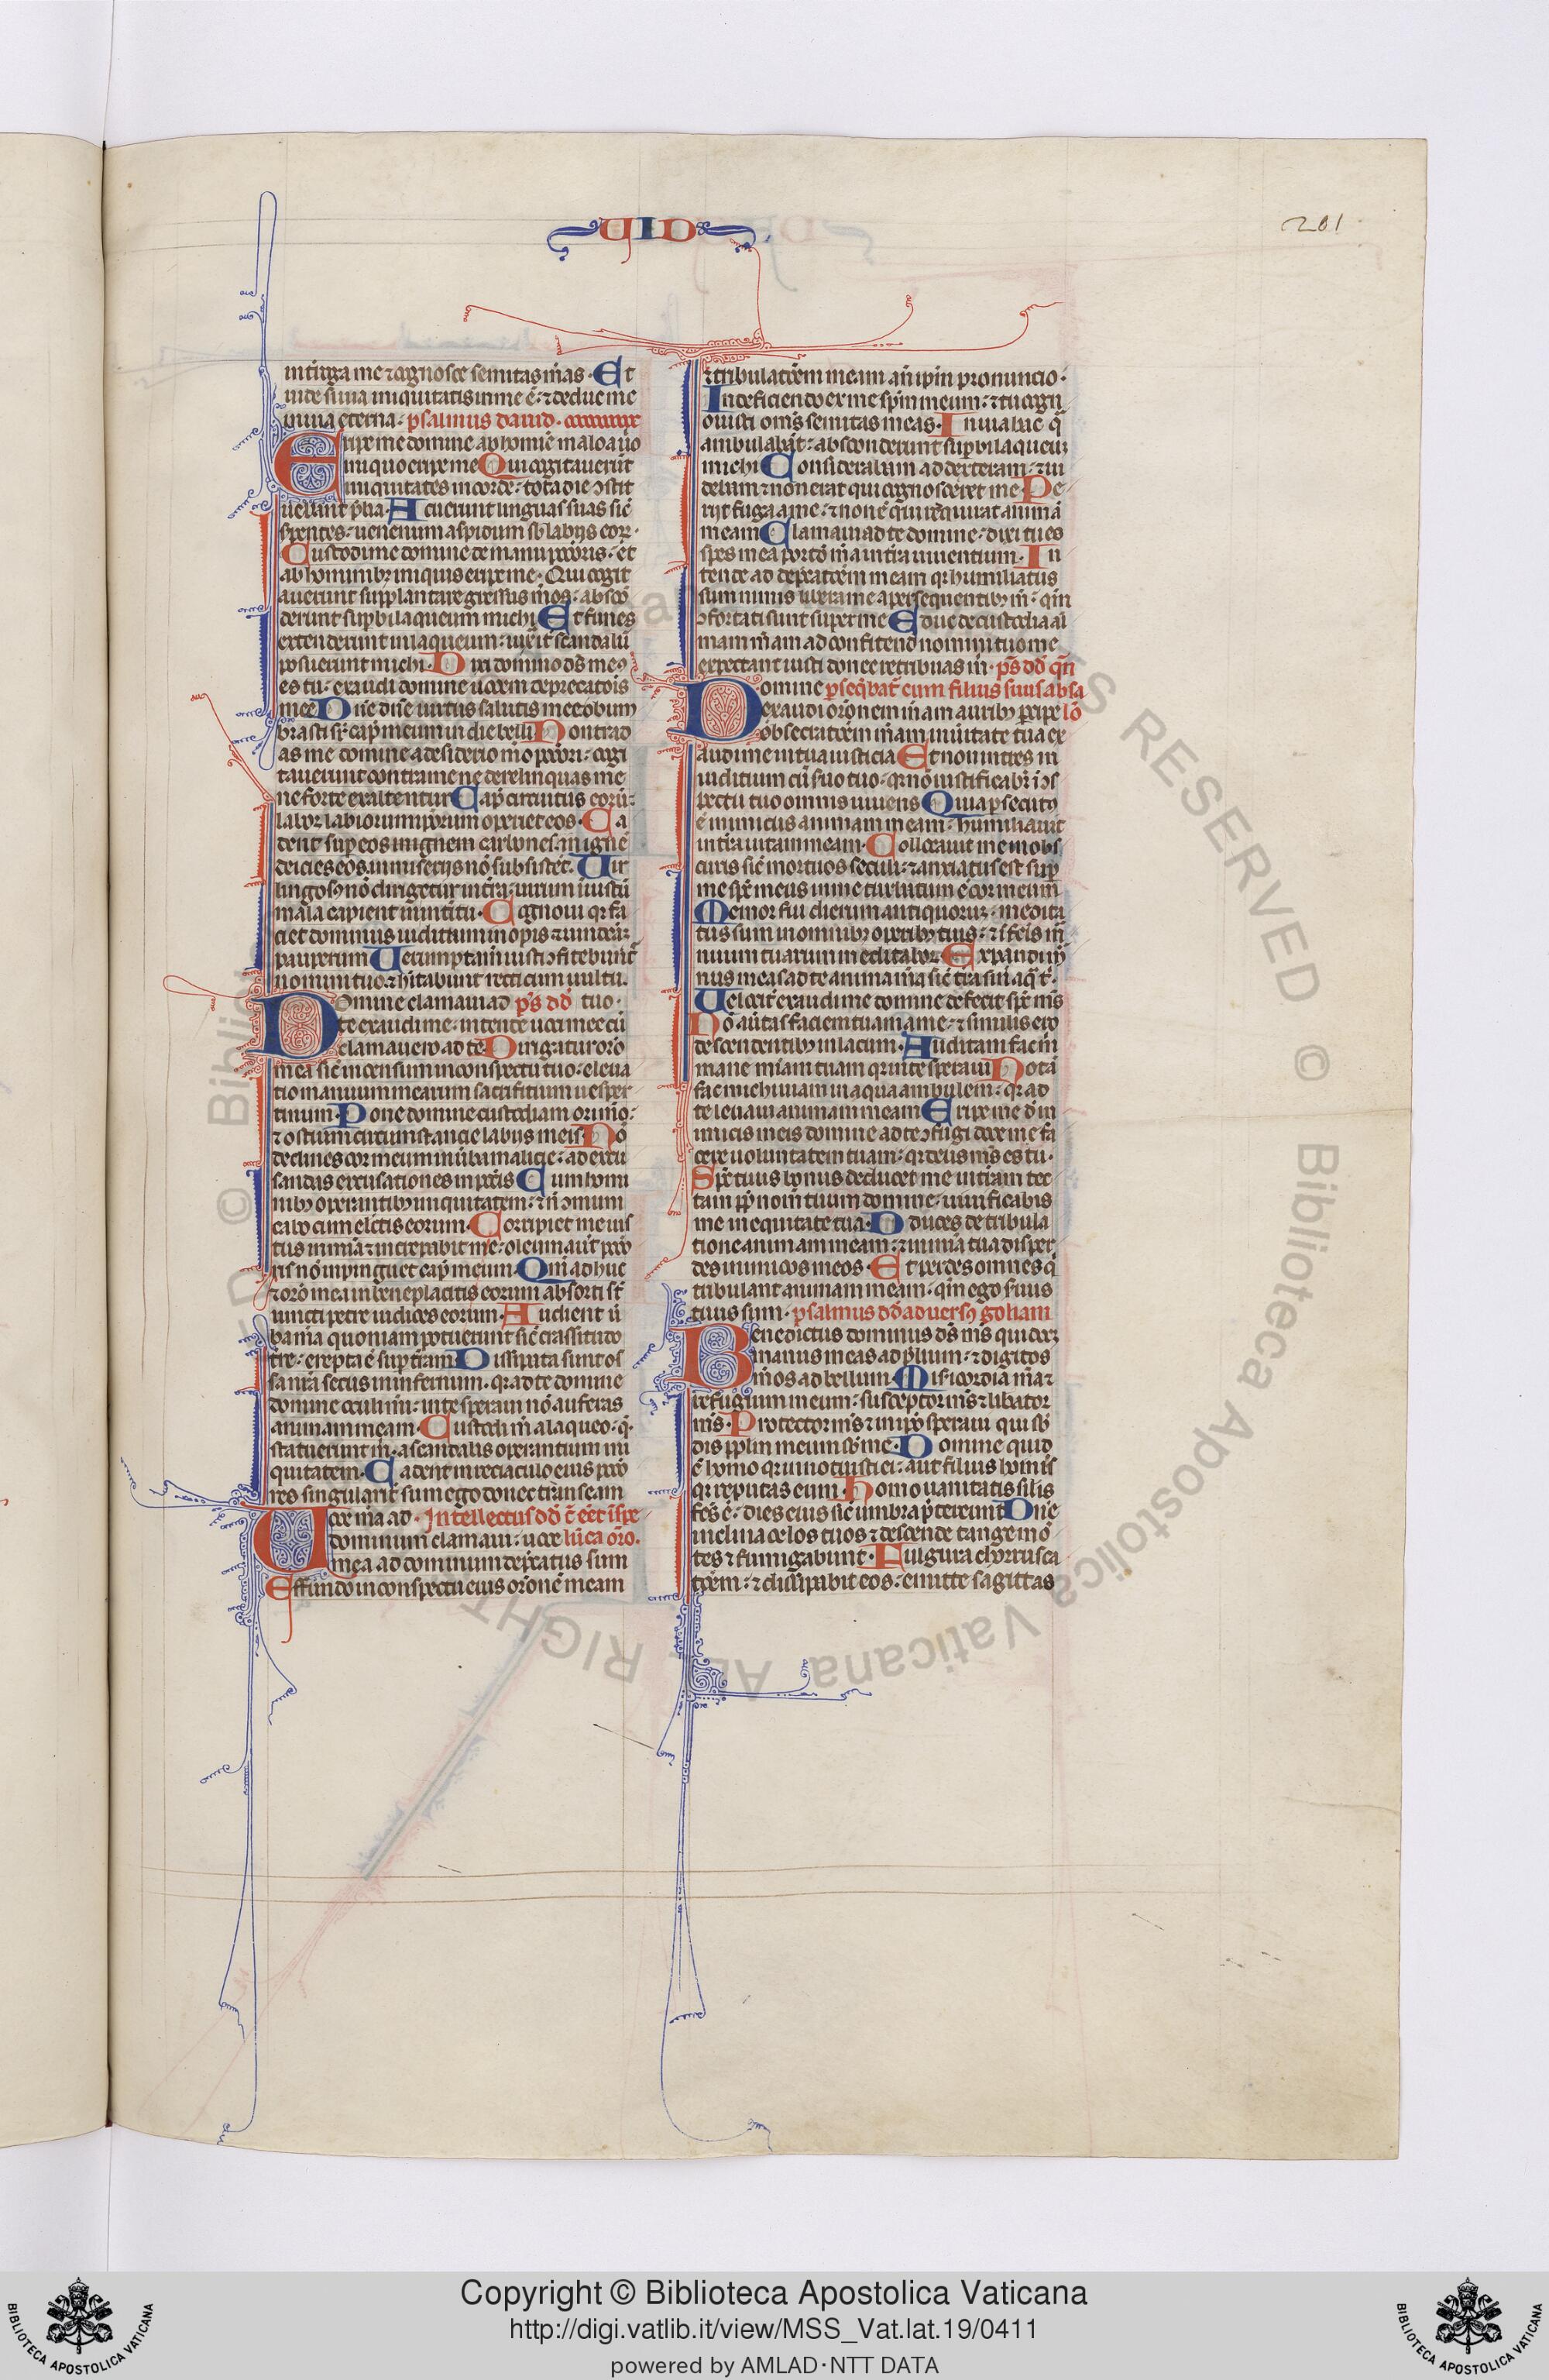 VID
201
int̾roga me ⁊ cognosce semitas meas. Et
uide si uia iniquitatis in me ē: ⁊ deduc me
in uia eterna. psalmus dauid.
Eripe me domine ab homīe malo a uiro
iniquo eripe me Qui cogitauerūt
iniquitates in corde: tota die ↄstit
uebant p̄lia. Acuerunt linguas suas sic̄
serpentes: uenenum aspidum sb̄ labijs eoꝝ.
Custodi me domine de manu pcc̄oris: et
ab hominibꝫ iniquis eripe me. Qui cogit
auerunt supplantare gressus meos: abscō
derunt supbi laqueum michi Et funes
extenderunt in laqueum: iux̄ it̾ scandalū
posuerunt michi. Dixi domino ds̄ meꝰ
es tu: exaudi domine uocem deprecatōis
mee Dn̄e dn̄e uirtus salutis mee obum
brasti sr̄ cap̄ meum in die belli Non trad
as me domine a desiderio mō pcc̄ori: cogi
tauerunt contra me ne derelinquas me
ne forte exaltentur Cap̄ circuitus eorū:
labor labiorum ip̄orum operiet eos. Ca
dent sup eos in ignem carbones: in ignē
deicies eos: in miserijs nō subsistēt. Uir
lingosꝰ nō dirigetur in t̾ra: uirum iniustū
mala capient in int̾itu. Cognoui qꝛ fa
ciet dominus iuditium inopis ⁊ uindc̄ā
pauperum Uerumptam̄ iusti ↄfitebunt̾
nomini tuo: ⁊ hītabunt recti cum uultu.
Domine clamaui ad ps̄ dd̄ tuo.
te exaudi me: intende uoci mee cū
clamauero ad te Dirigatur oro
mea sic̄ incensum in conspectu tuo: eleua
tio manuum mearum sacrifitium uesper
tinum. Pone domine custodiam ori mō:
⁊ ostium circumstancie labiis meis. Nō
declines cor meum in ūba malicie: ad excu
sandas excusationes in pcc̄is Cum homi
nibꝫ operantibꝫ iniquitatem: ⁊ nō ↄmuni
cabo cum electis eorum. Corripiet me ius
tus in mīa ⁊ increpabit me: oleum aut̄ pcc̄o
ris nō inpinguet cap̄ meum. Qm̄ adhuc
⁊ orō mea in beneplacitis eorum absorti st̄
iuncti petre iudices eorum. Audient ū
ba mea quoniam potuerunt sic̄ crassitudo
t̾re: erepta ē sup t̾ram Dissipata sunt os
sa nr̄a secus infernum. qꝛ ad te domine
domine oculi mī: in te speraui nō auferas
animam meam. Custodi m̄ a laqueo: q̄
statuerunt m̄. a scandalis operantium ini
quitatem. Cadent in retiaculo eius pcc̄o
res singularit̾ sum ego donec transeam
Uoce mea ad. Intellectus dd̄ cē eēt ī spe
dominum clamaui: uoce lūca oro.
mea ad dominum dep̄catus sum
Effundo in conspectu eius orōnē meam
⁊ tribulacōem meam an̄ ipm̄ pronuncio.
In deficiendo ex me sp̄m meum: ⁊ tu cogn
ouisti om̄s semitas meas. In uia hac q̄
ambulabā: absconderunt supbi laqueū
michi Considerabam ad dexteram: ⁊ ui
debam ⁊ non erat qui cognosceret me Pe
rijt fuga a me: ⁊ non ē qui requirat animā
meam Clamaui ad te domine: dixi tu es
spes mea portō mea in t̾ra uiuentium. In
tende ad dep̄catōem meam qꝛ humiliatus
sum nimis libera me a persequentibꝫ m̄: qm̄
ↄfortati sunt super me Educ de custodia ai
mam meam ad confitend nomini tuo me
expectant iusti donec retribuas m̄. ps̄ dd̄ qn̄
Domine pseq̄bat̾ eum filius suus absa
exaudi orōnem meam auribꝫ pcipe lō
obsecratōem meam in ueritate tua ex
audi me in tua iusticia Et non intres in
iuditium cū suo tuo: qꝛ nō iustificabit̾ ī ↄs
pectu tuo omnis uiuens Quia psecutꝰ
ē inimicus animam meam: humiliauit
in t̾ra uitam meam. Collocauit me in obs
curis sic̄ mortuos seculi: ⁊ anxiatus est sup
me spc̄ meus in me turbatum ē cor meum
Memor fui dierum antiquorum: medita
tus sum in omnibꝫ operibꝫ tuis: ⁊ ī fc̄is m̄
nuum tuarum meditabor Expandi m̄
nus meas ad te anima mea sic̄ t̾ra sin̄ aq̄ t.
Uelocit̾ exaudi me domine defecit spc̄ m̄s
Nō au̾tas faciem tuam a me: ⁊ similis ero
descendentibꝫ in lacum. Auditam fac m̄
mane mīam tuam qꝛ in te speraui Notā
fac michi uiam in qua ambulem: qꝛ ad
te leuaui animam meam Eripe me d̄ in
imicis meis domine ad te ↄfugi doce me fa
cere uoluntatem tuam: qꝛ deus m̄s es tu.
Spc̄ tuus bonus deducet me in t̾ram rec
tam pp̄ nom̄ tuum domine: uiuificabis
me in equitate tua. Educes de tribula
tione animam meam: ⁊ in mīa tua disper
des inimicos meos. Et perdes omnes q̄
tribulant animam meam. qm̄ ego suus
tuus sum. psalmus dd̄ aduersꝰ goliam
Benedictus dominus ds̄ m̄s qui docꝫ
manus meas ad p̄lium: ⁊ digitos
meos ad bellum. Misicordia mea ⁊
refugium meum: susceptor m̄s ⁊ libator
m̄s. Protector m̄s ⁊ in ip̄o speraui qui sb̄
dis pplm̄ meum sb̄ me. Domine quid
ē homo qꝛ innotuisti ei: aut filius homīs
qꝛ reputas eum. Homo uanitatis silīs
fc̄s ē: dies eius sic̄ umbra p̄tereunt Dn̄e
inclina celos tuos ⁊ descende tange mō
tes ⁊ fumigabunt. Fulgura chorusca
cōem: ⁊ dissipabit eos: emitte sagittas
Copyright © Biblioteca Apostolica Vaticana
http://digi.vatlib.it/view/MSS_Vat.lat.19/0411
powered by AMLAD·NTT DATA
BIBLIOTECA APOSTOLICA VATICANA
BIBLIOTECA APOSTOLICA VATICANA